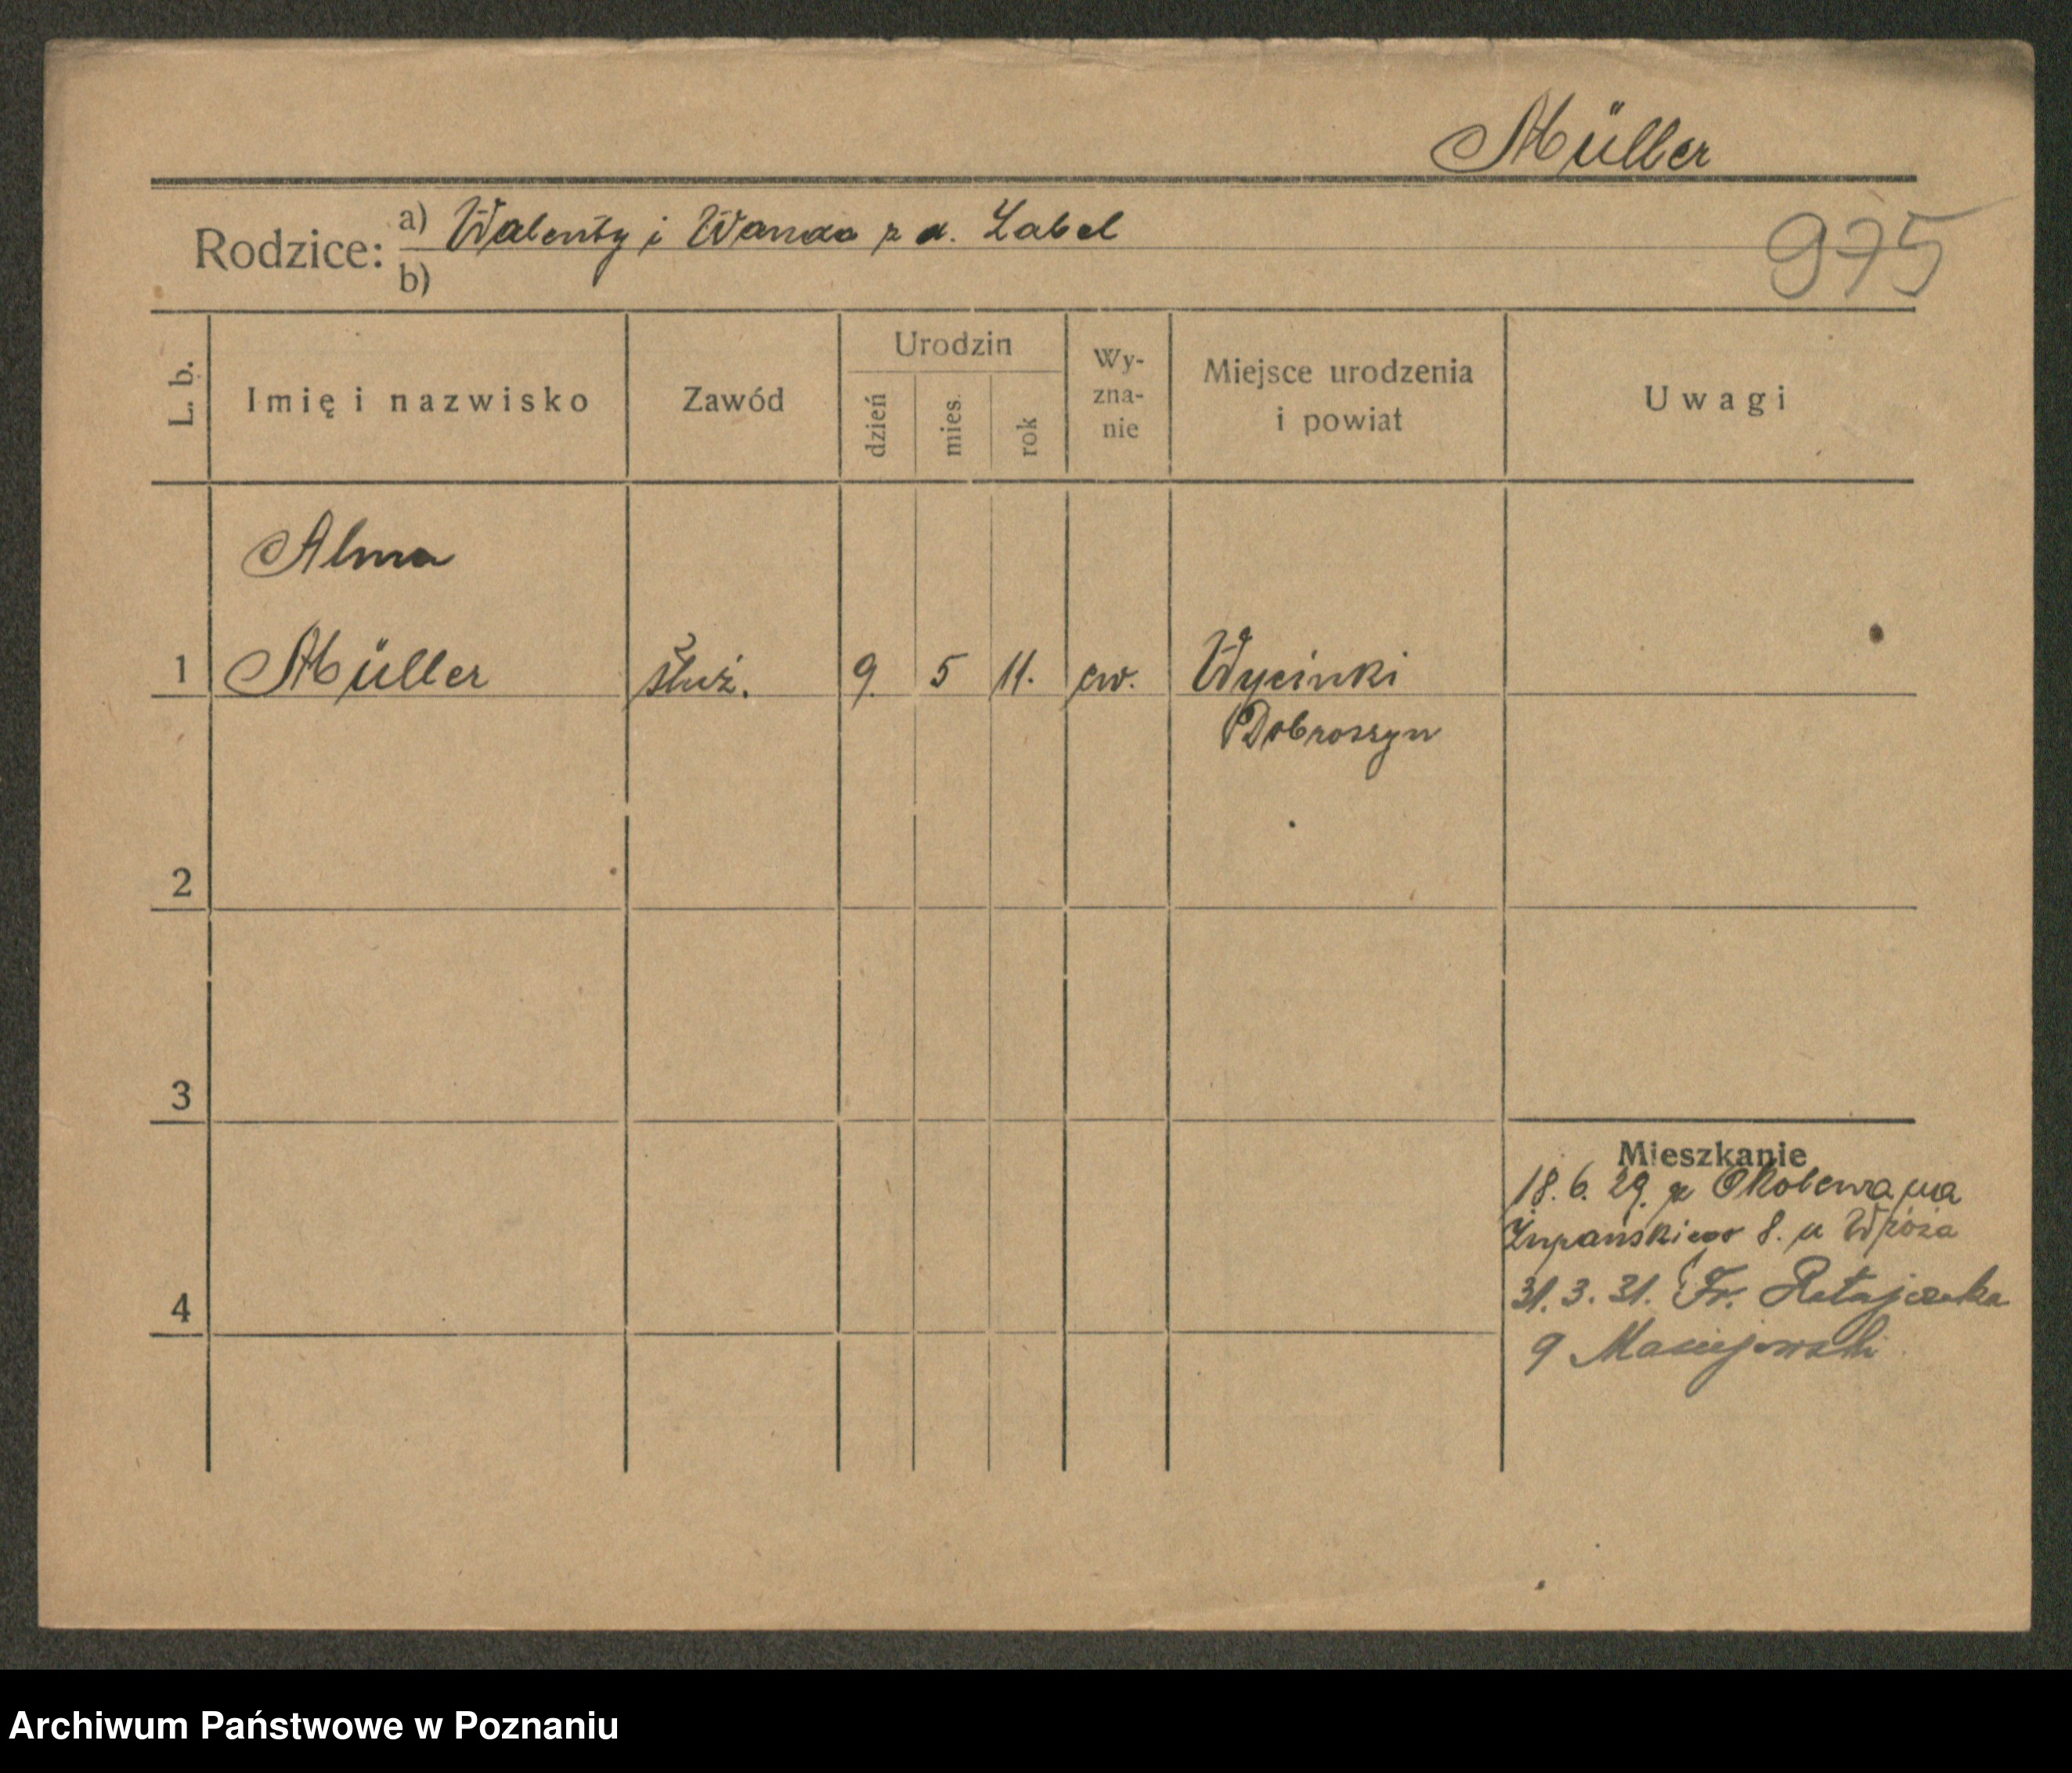 Müller
Rodzice: a) Walenty i Wanda z d. Zabel
975
b)
L. b. Imię i nazwisko Zawód Urodzin dzień mies. rok Wy-zna-nie Miejsce urodzenia i powiat Uwagi
Alma
1 Müller służ. 9. 5 11. ew. Wycinki
Dobroszyn
2
3
Mieszkanie
18.6.29. z
Żupańskiego 8. u
31.3.31. Fr. Ratajczaka
4
9 Maciejewski
Archiwum Państwowe w Poznaniu